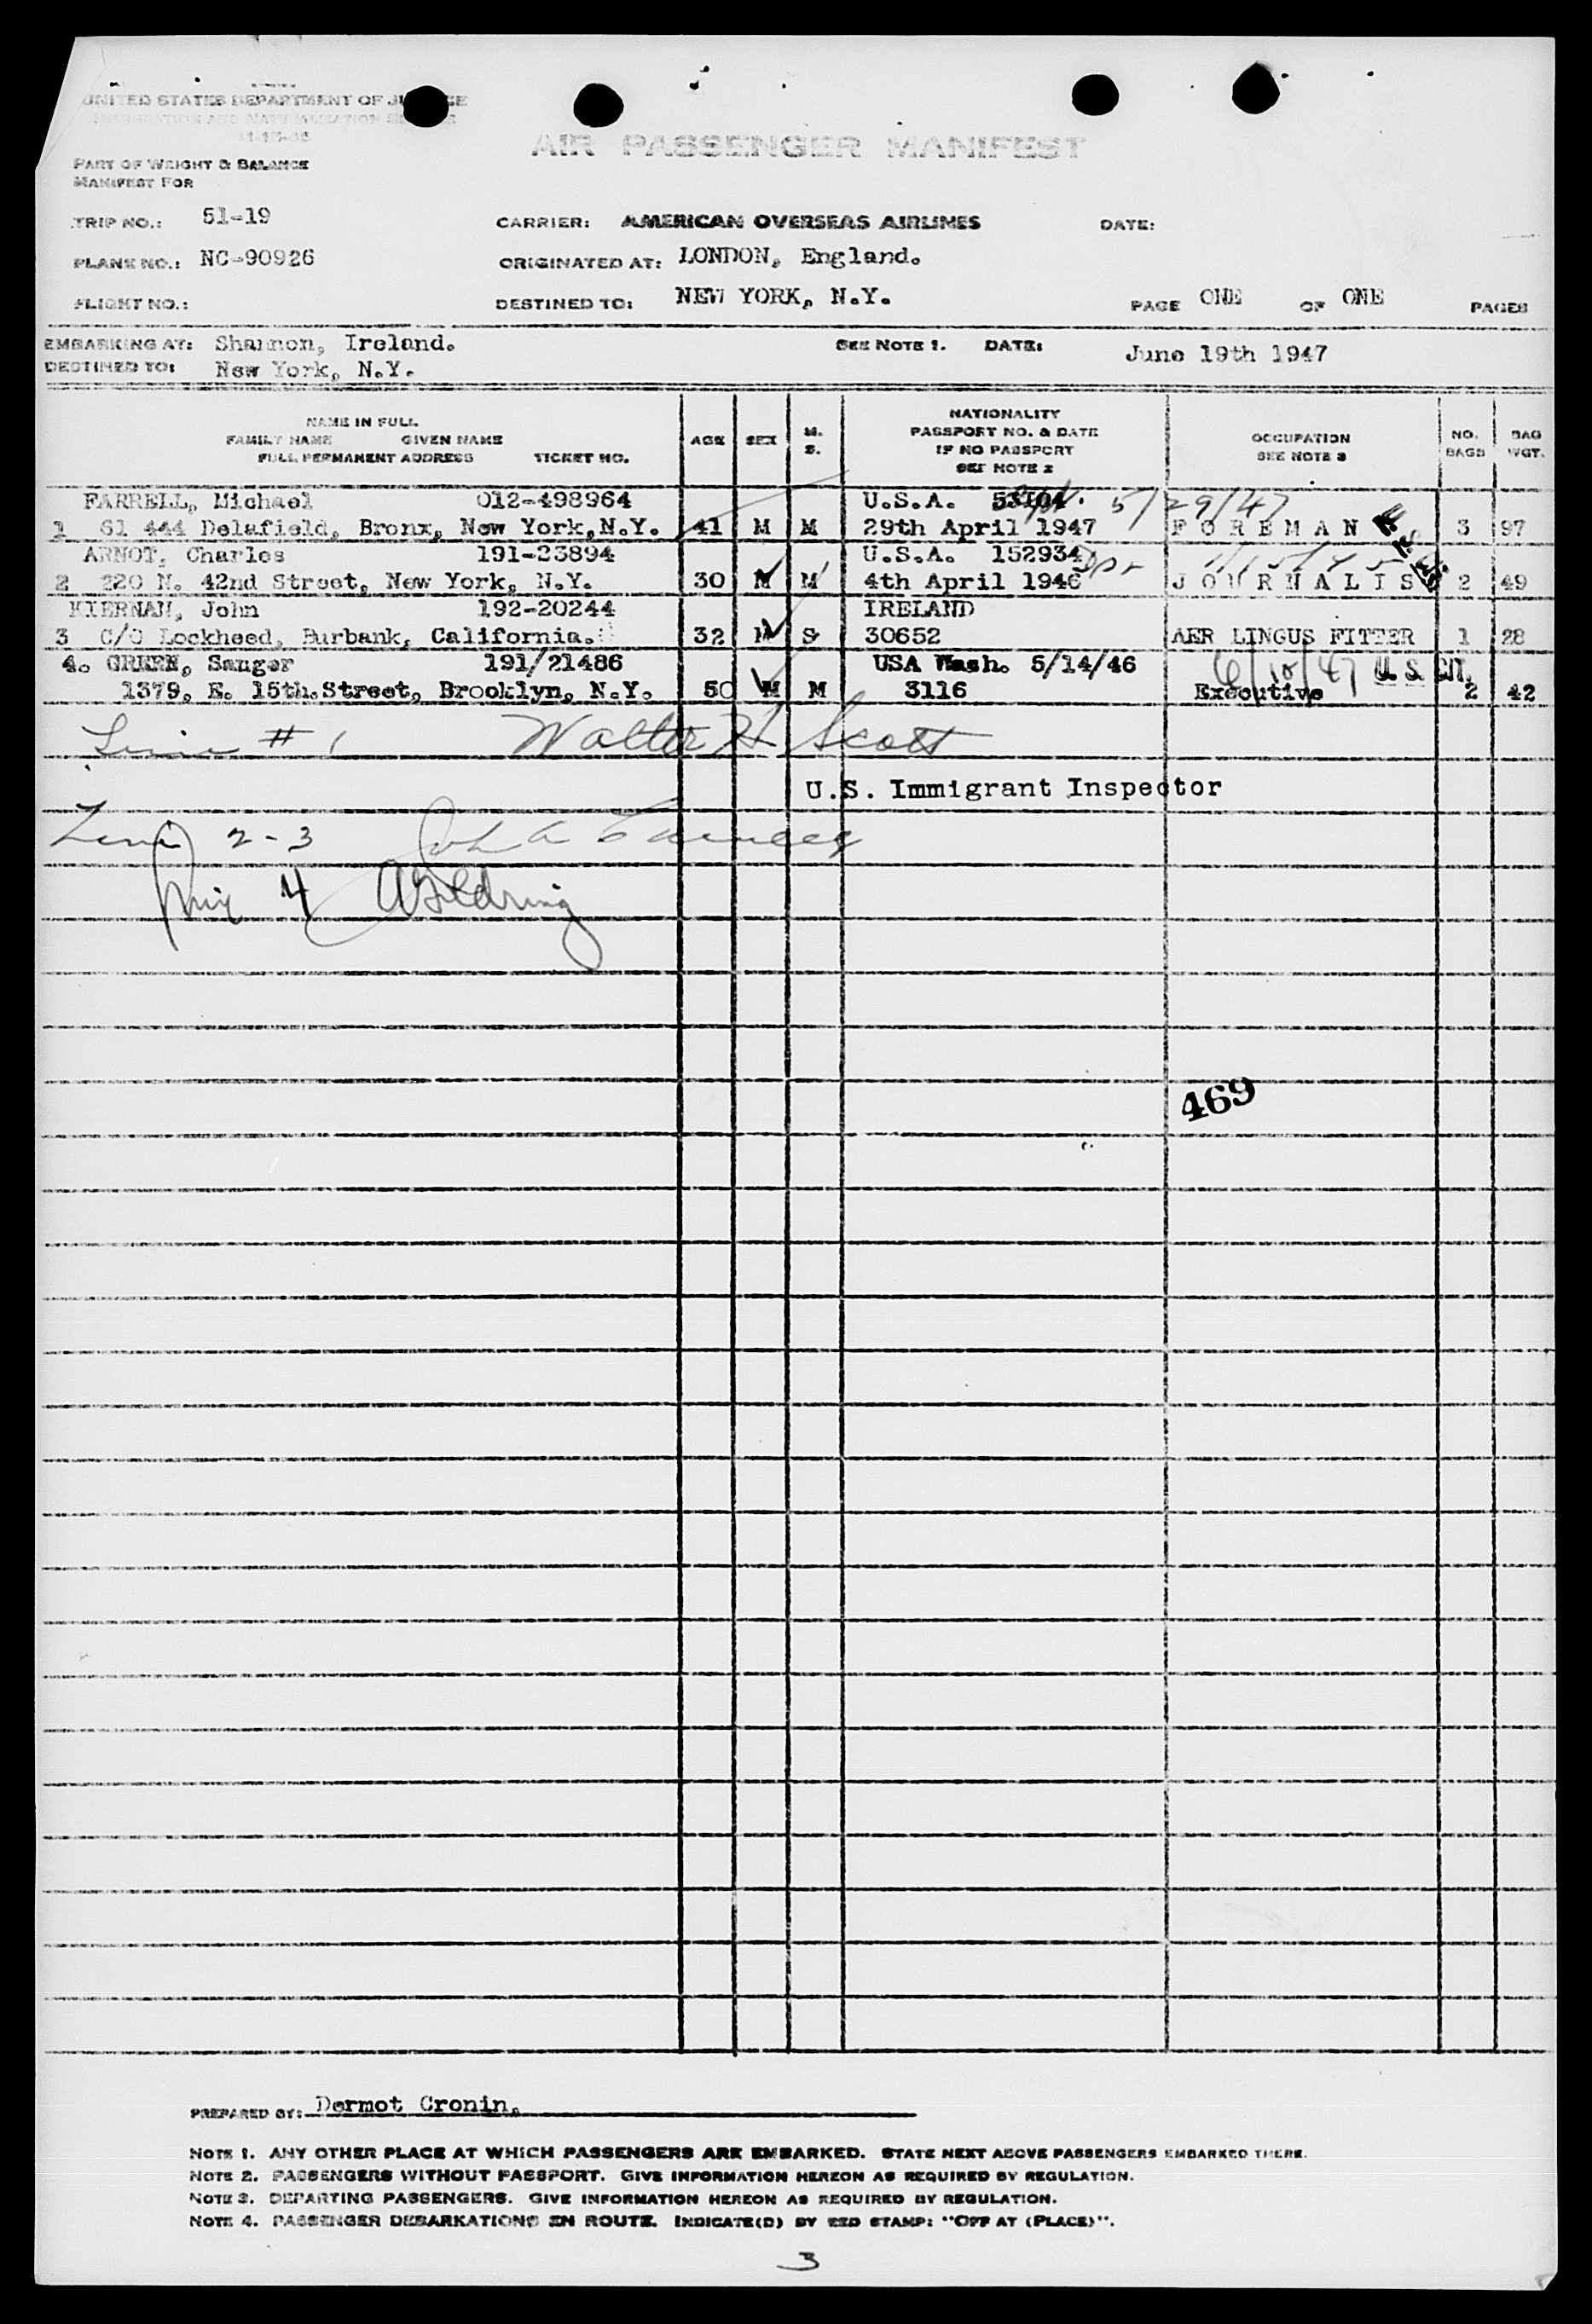 UNITED STATES DEPARTMENT OF JUSTICE
IMMIGRATION AND NATURALIZATION SERVICE
AIR PASSENGER MANIFEST
PART OF WEIGHT & BALANCE
MANIFEST FOR
TRIP NO.: 51-19 CARRIER: AMERICAN OVERSEAS AIRLINES DATE:
PLANE NO.: NC-90926 ORIGINATED AT: LONDON, England.
FLIGHT NO.: DESTINED TO: NEW YORK, N.Y. PAGE ONE OF ONE PAGES
EMBARKING AT: Shannon, Ireland. SEE NOTE 1. DATE: June 19th 1947
DESTINED TO: New York, N.Y.
NAME IN FULL
FAMILY NAME GIVEN NAME
FULL PERMANENT ADDRESS TICKET NO.
AGE SEX M. S.
NATIONALITY
PASSPORT NO. & DATE
IF NO PASSPORT
SEE NOTE 2
OCCUPATION
SEE NOTE 3
NO. BAGS
BAG WGT.
FARRELL, Michael 012-498964 U.S.A. 5/29/47
1 61 444 Delafield, Bronx, New York,N.Y. 41 M M 29th April 1947 FOREMAN 3 97
ARNOT, Charles 191-23894 U.S.A. 152934
2 220 N. 42nd Street, New York, N.Y. 30 M M 4th April 1946 JOURNALIS 2 49
KIERNAN, John 192-20244 IRELAND
3 C/O Lockheed, Burbank, California. 32 M S 30652 AER LINGUS FITTER 1 28
4. GREEN, Sanger 191/21486 USA Wash. 5/14/46 6/18/47 U.S. CIT.
1379, E. 15th.Street, Brooklyn, N.Y. 50 M M 3116 Executive 2 42
Line # 1 Walter H Scott
U.S. Immigrant Inspector
Line 2-3 John A
Line 4
469
PREPARED BY: Dermot Cronin.
NOTE 1. ANY OTHER PLACE AT WHICH PASSENGERS ARE EMBARKED. STATE NEXT ABOVE PASSENGERS EMBARKED THERE.
NOTE 2. PASSENGERS WITHOUT PASSPORT. GIVE INFORMATION HEREON AS REQUIRED BY REGULATION.
NOTE 3. DEPARTING PASSENGERS. GIVE INFORMATION HEREON AS REQUIRED BY REGULATION.
NOTE 4. PASSENGER DEBARKATIONS EN ROUTE. INDICATE(D) BY RED STAMP: "OFF AT (PLACE)".
3